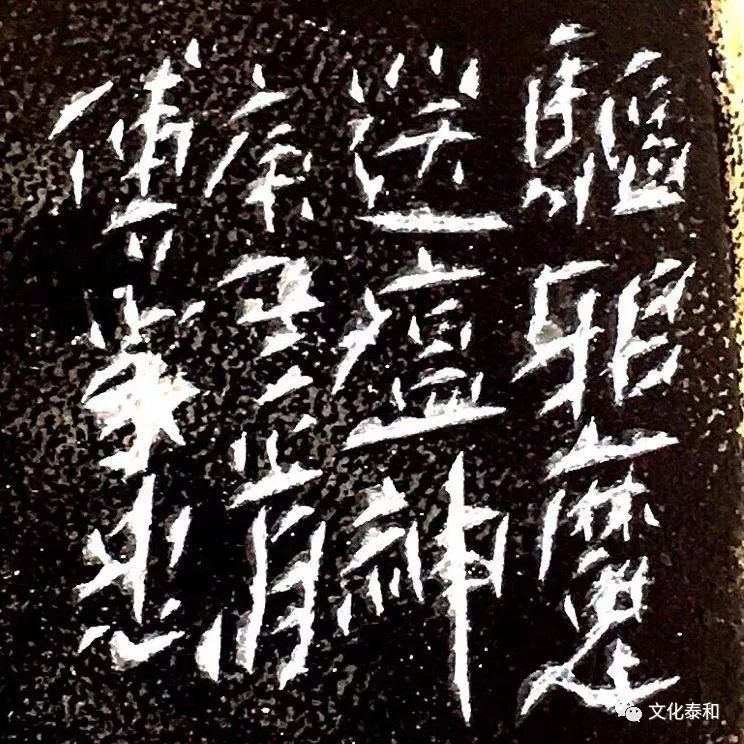 驅邪魔
送瘟神
庚子正月
傅業忠
文化泰和